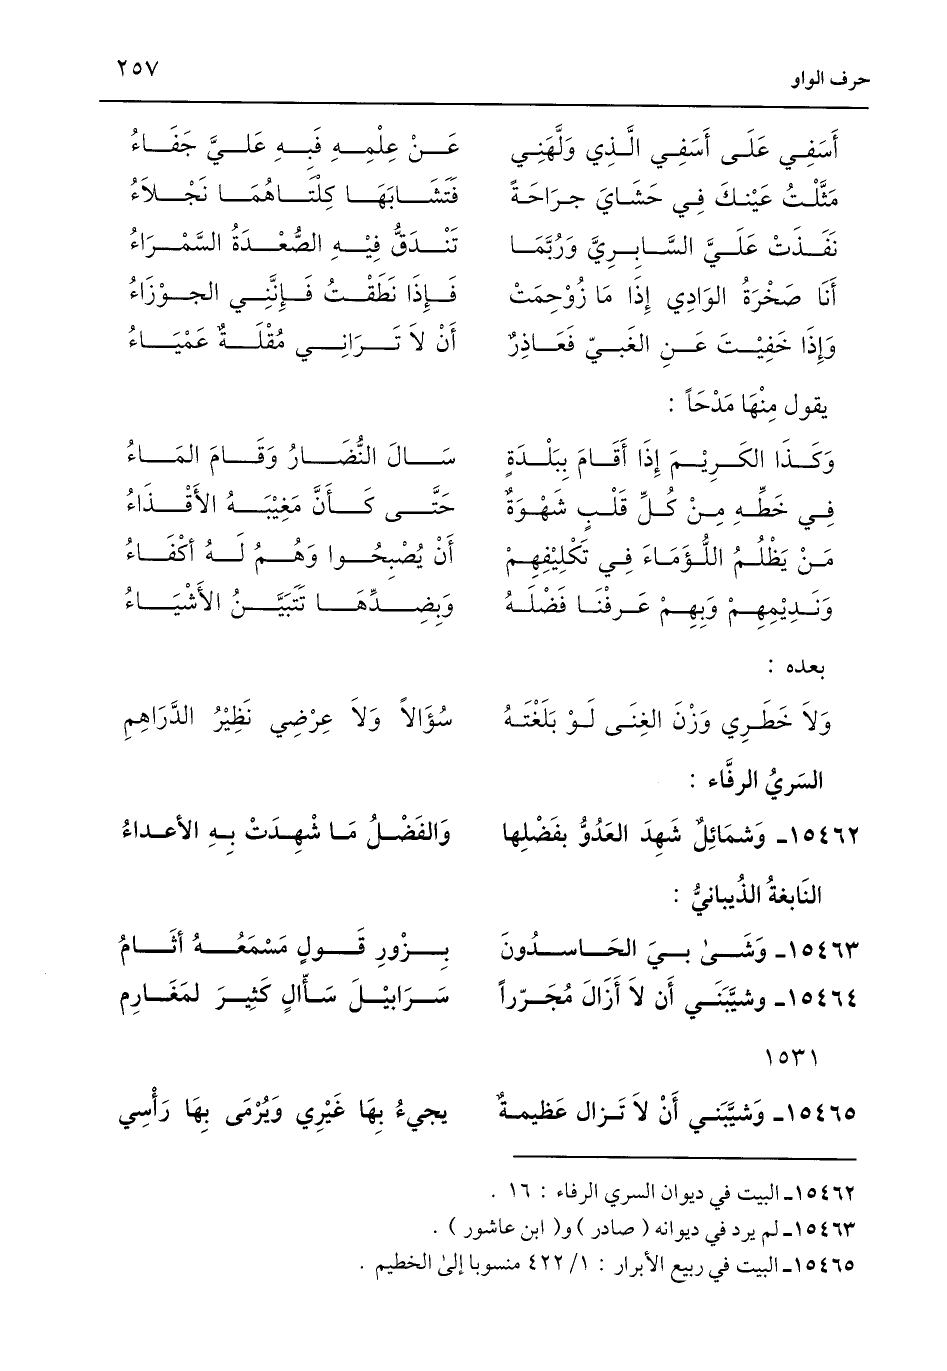 حرف الواو ٢٥٧
أَسَفِي عَلَى أَسَفِي الَّذِي وَلَّهَنِي عَنْ عِلْمِهِ فَبِهِ عَلَيَّ خَفَاءُ
مَثَّلْتُ عَيْنَكَ فِي حَشَايَ جِرَاحَةً فَتَشَابَهَا كِلْتَاهُمَا نَجْلاَءُ
نَفَذَتْ عَلَيَّ السَّابِرِيَّ وَرُبَّمَا تَنْدَقُّ فِيْهِ الصُّعْدَةُ السَّمْرَاءُ
أَنَا صَخْرَةُ الوَادِي إِذَا مَا زُوْحِمَتْ فَإِذَا نَطَقْتُ فَإِنَّنِي الجَوْزَاءُ
وَإِذَا خَفِيْتَ عَنِ الغَبيّ فَعَاذِرٌ أَنْ لاَ تَرَانِي مُقْلَةٌ عَمْيَاءُ
يقول مِنْهَا مَدْحَاً :
وَكَذَا الكَرِيْمَ إِذَا أَقَامَ بِبَلْدَةٍ سَالَ النُّضَارُ وَقَامَ المَاءُ
فِي خَطِّهِ مِنْ كُلِّ قَلْبٍ شَهْوَةٌ حَتَّى كَأَنَّ مَغِيْبَهُ الأَقْذَاءُ
مَنْ يَظْلُمُ اللُّؤمَاءَ فِي تَكْلِيْفِهِمْ أَنْ يُصْبِحُوا وَهُمُ لَهُ أكْفَاءُ
وَنَدِيْمِهِمْ وَبِهِمْ عَرفْنَا فَضْلَهُ وَبِضِدِّهَا تَتَبَيَّنُ الأَشْيَاءُ
بعده :
وَلاَ خَطَرِي وَزْنَ الغِنَى لَوْ بَلَغْتَهُ سُؤَالاً وَلاَ عِرْضِي نَظِيْرُ الدَّرَاهِمِ
السَريُ الرفَّاء :
١٥٤٦٢ـ وَشمَائِلٌ شَهِدَ العَدُوُّ بفَضْلِها وَالفَضْلُ مَا شْهِدَتْ بِهِ الأعداءُ
النَابغةُ الذُيبانيُّ :
١٥٤٦٣ـ وَشَىٰ بِيَ الحَاسدُونَ بِزْورِ قَولٍ مَسْمَعُهُ أثَامُ
١٥٤٦٤ـ وشيَّبَنَي أن لاَ أزَالَ مُجَرّراً سَرَابيْلَ سَأّالٍ كَثيرَ لمَغَارِمِ
١٥٣١
١٥٤٦٥ـ وَشيَّبَنَي أَنْ لاَ تَزال عَظِيمةٌ يجيءُ بِهَا غَيْرِي وَيُرْمَى بِهَا رَأْسِي
١٥٤٦٢ـ البيت في ديوان السري الرفاء : ١٦ .
١٥٤٦٣ـ لم يرد في ديوانه ( صادر ) و( ابن عاشور ) .
١٥٤٦٥ـ البيت في ربيع الأبرار : ١/ ٤٢٢ منسوبا إلىٰ الخطيم .